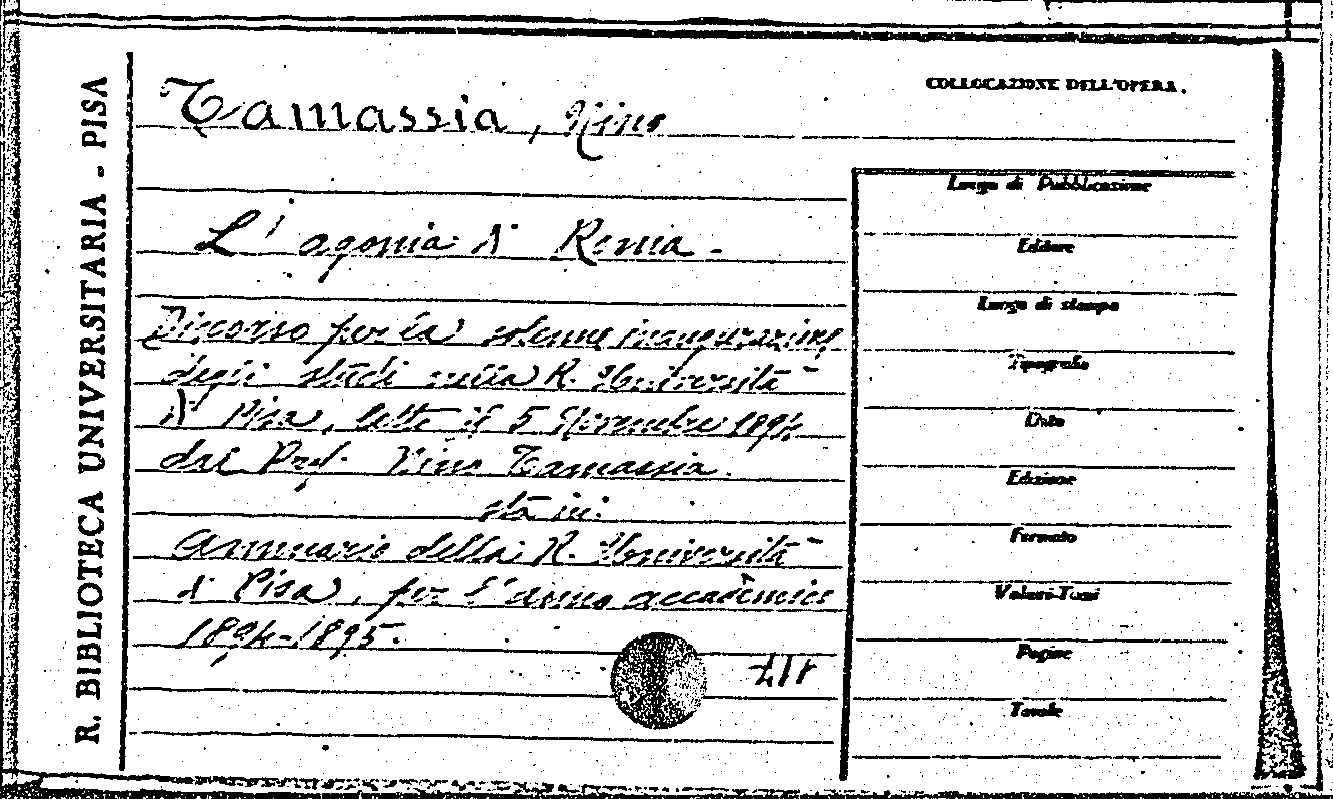 R. BIBLIOTECA UNIVERSITARIA - PISA
Tamassia, Nino
COLLOCAZIONE DELL'OPERA.
L' agonia di Roma.
Discorso per la solenne inaugurazione
degli studi nella R. Università
di Pisa, letto il 5 Novembre 1894
dal Prof. Nino Tamassia.
sta in:
Annuario della R. Università
di Pisa, per l'anno accademico
1894-1895.
Luogo di Pubblicazione
Editore
Luogo di stampa
Tipografo
Data
Edizione
Formato
Volumi-Tomi
Pagine
Tavole